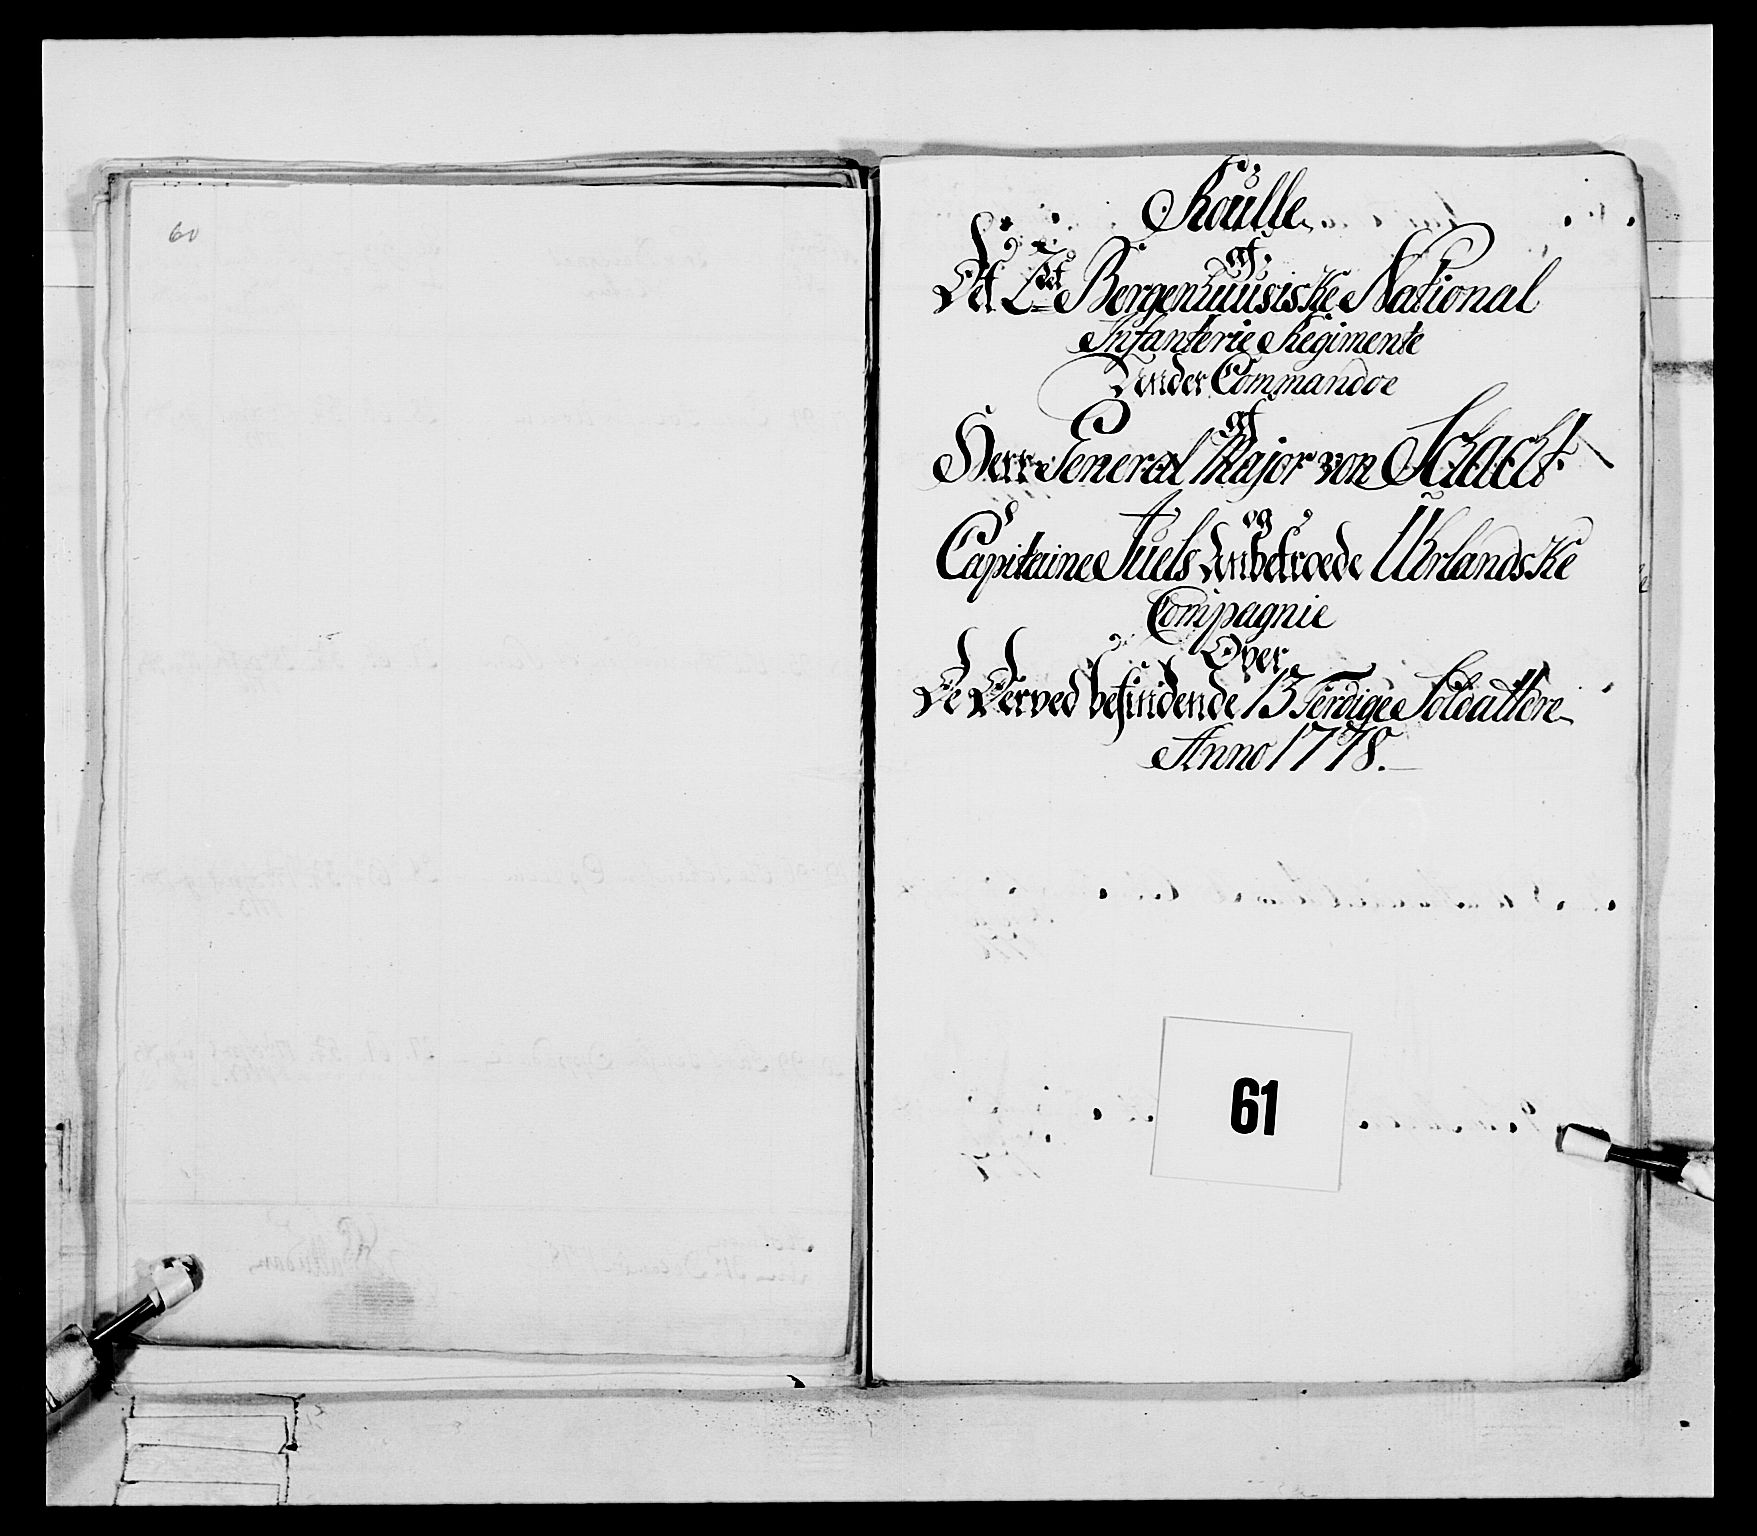 60
Roulle
af
Det 2det Bergenhuusiske National
Infanterie Regimente
Under Commandoe
af
Herr General Major von Schacht
og
Capitaine Juels Anbetroede Uhrlandske
Compagnie
Over
De Derved befindende 13 Ferdige Soldattere
Anno 1778.
61